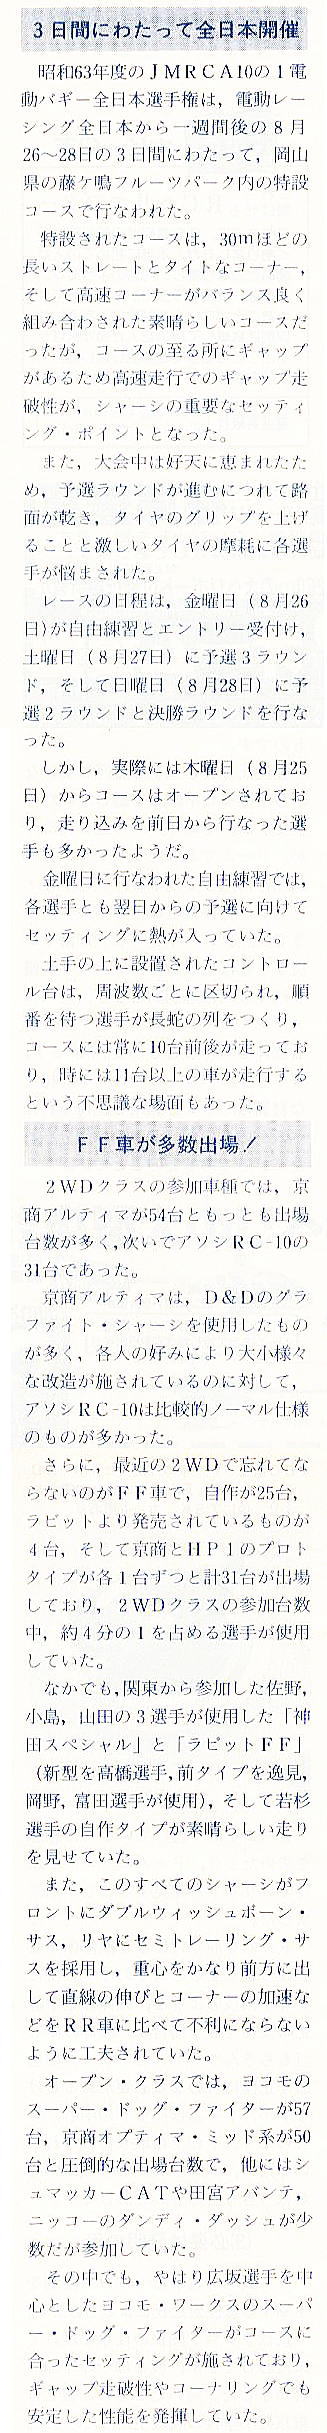 3日間にわたって全日本開催
昭和63年度のJMRCA10の1電
動バギー全日本選手権は，電動レー
シング全日本から一週間後の8月
26〜28日の3日間にわたって，岡山
県の藤ケ鳴フルーツパーク内の特設
コースで行なわれた。
特設されたコースは，30mほどの
長いストレートとタイトなコーナー，
そして高速コーナーがバランス良く
組み合わされた素晴らしいコースだ
ったが，コースの至る所にギャップ
があるため高速走行でのギャップ走
破性が，シャーシの重要なセッティ
ング・ポイントとなった。
また，大会中は好天に恵まれたた
め，予選ラウンドが進むにつれて路
面が乾き，タイヤのグリップを上げ
ることと激しいタイヤの摩耗に各選
手が悩まされた。
レースの日程は，金曜日（8月26
日)が自由練習とエントリー受付け，
土曜日（8月27日）に予選3ラウン
ド，そして日曜日（8月28日）に予
選2ラウンドと決勝ラウンドを行な
った。
しかし，実際には木曜日（8月25
日）からコースはオープンされてお
り，走り込みを前日から行なった選
手も多かったようだ。
金曜日に行なわれた自由練習では，
各選手とも翌日からの予選に向けて
セッティングに熱が入っていた。
土手の上に設置されたコントロー
ル台は，周波数ごとに区切られ，順
番を待つ選手が長蛇の列をつくり，
コースには常に10台前後が走ってお
り，時には11台以上の車が走行する
という不思議な場面もあった。
FF車が多数出場！
2WDクラスの参加車種では，京
商アルティマが54台ともっとも出場
台数が多く，次いでアソシRC-10の
31台であった。
京商アルティマは，D&Dのグラ
ファイト・シャーシを使用したもの
が多く，各人の好みにより大小様々
な改造が施されているのに対して，
アソシRC-10は比較的ノーマル仕様
のものが多かった。
さらに，最近の2WDで忘れてな
らないのがFF車で，自作が25台，
ラビットより発売されているものが
4台，そして京商とHPIのプロト
タイプが各1台ずつと計31台が出場
しており，2WDクラスの参加台数
中，約4分の1を占める選手が使用
していた。
なかでも，関東から参加した佐野，
小島，山田の3選手が使用した「神
田スペシャル」と「ラビットFF」
（新型を高橋選手，前タイプを逸見，
岡野，富田選手が使用)，そして若杉
選手の自作タイプが素晴らしい走り
を見せていた。
また，このすべてのシャーシがフ
ロントにダブルウィッシュボーン・
サス，リヤにセミトレーリング・サ
スを採用し，重心をかなり前方に出
して直線の伸びとコーナーの加速な
どをRR車に比べて不利にならない
ように工夫されていた。
オープン・クラスでは，ヨコモの
スーパー・ドッグ・ファイターが57
台，京商オプティマ・ミッド系が50
台と圧倒的な出場台数で，他にはシ
ュマッカーCATや田宮アバンテ，
ニッコーのダンディ・ダッシュが少
数だが参加していた。
その中でも，やはり広坂選手を中
心としたヨコモ・ワークスのスーパ
ー・ドッグ・ファイターがコースに
合ったセッティングが施されており，
ギャップ走破性やコーナリングでも
安定した性能を発揮していた。